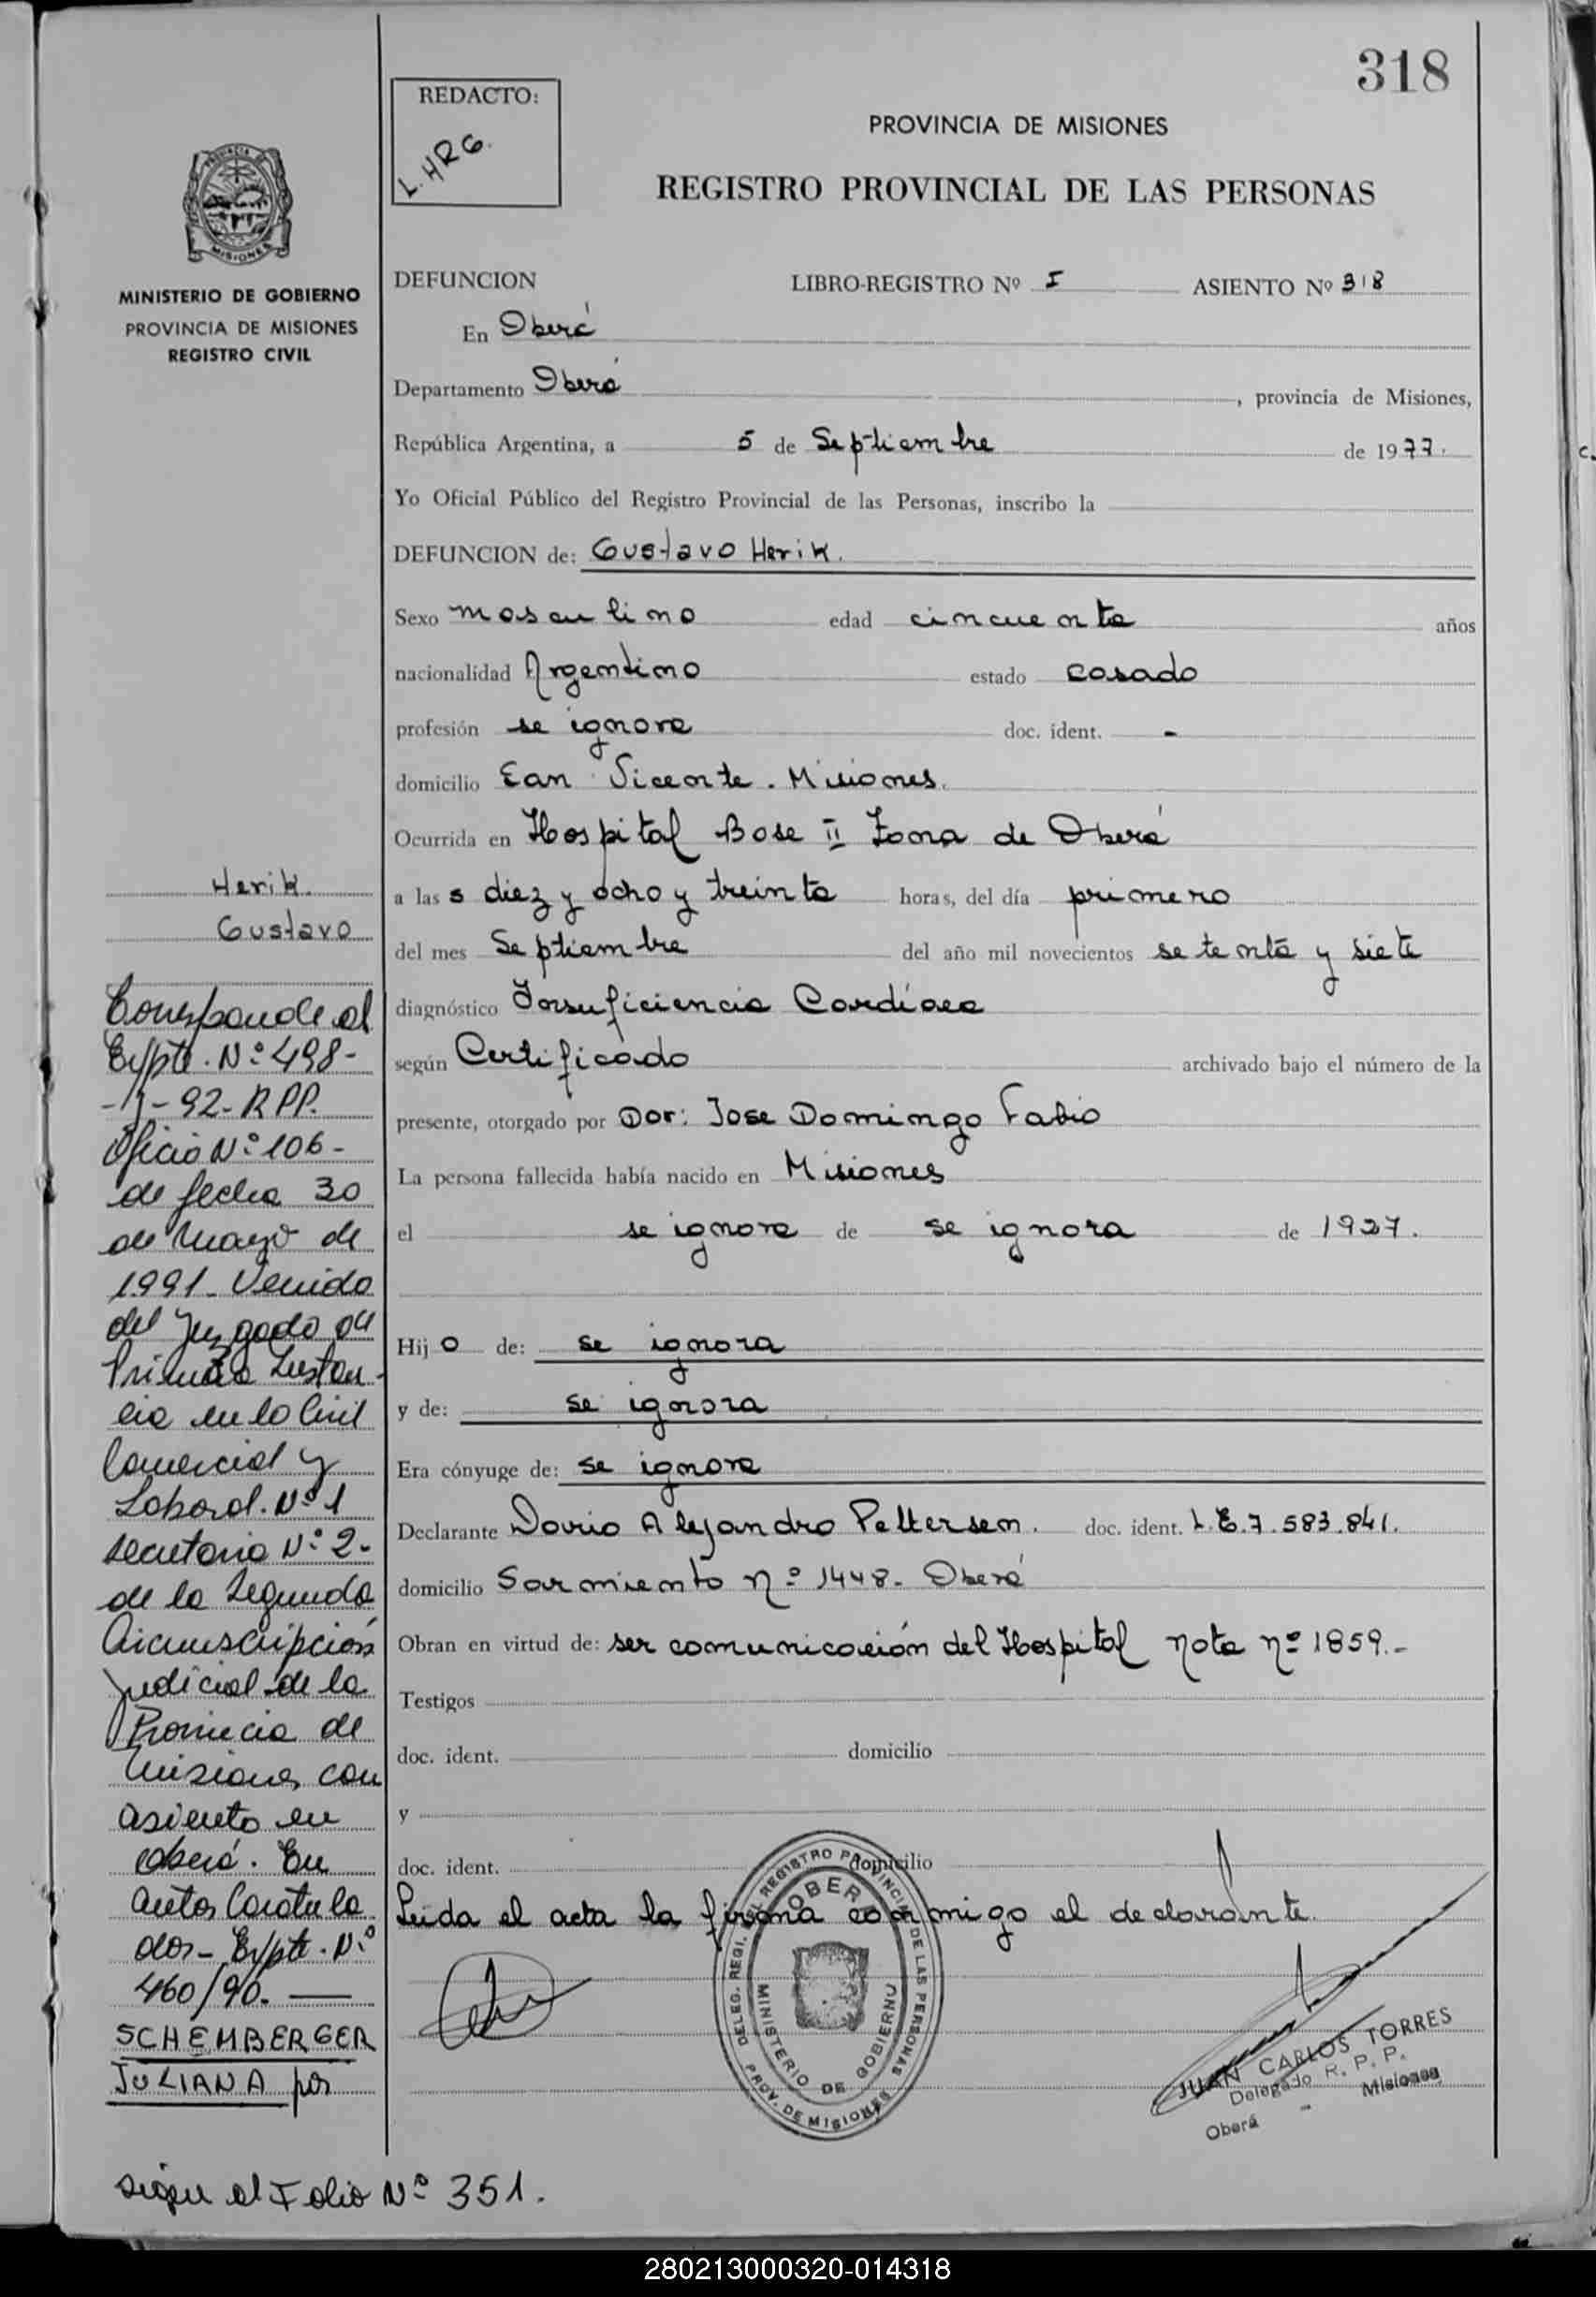 318
REDACTO:
L.HRG.
PROVINCIA DE MISIONES
REGISTRO PROVINCIAL DE LAS PERSONAS
PROVINCIA DE
MISIONES
MINISTERIO DE GOBIERNO
PROVINCIA DE MISIONES
REGISTRO CIVIL
DEFUNCION LIBRO-REGISTRO Nº I ASIENTO Nº 318
En Oberá
Departamento Oberá, provincia de Misiones,
República Argentina, a 5 de Septiembre de 1977.
Yo Oficial Público del Registro Provincial de las Personas, inscribo la
DEFUNCION de: Gustavo Herik.
Sexo masculino edad cincuenta años
nacionalidad Argentino estado casado
profesión se ignora doc. ident. -
domicilio San Vicente. Misiones.
Ocurrida en Hospital Base II Zona de Oberá
a las s diez y ocho y treinta horas, del día primero
del mes Septiembre del año mil novecientos setenta y siete
diagnóstico Insuficiencia Cardíaca
según Certificado archivado bajo el número de la
presente, otorgado por Dor: Jose Domingo Fabio
La persona fallecida había nacido en Misiones
el se ignora de se ignora de 1927.
Hij o de: se ignora
y de: se ignora
Era cónyuge de: se ignora
Declarante Dario Alejandro Pettersen. doc. ident. L.E.7.583.841.
domicilio Sarmiento nº 1448- Oberá
Obran en virtud de: ser comunicación del Hospital nota nº 1859.-
Testigos
doc. ident. domicilio
y
doc. ident. domicilio
Leida el acta la firma conmigo el declarante.
DELEG. REGI. DEL REGISTRO PROVINCIAL DE LAS PERSONAS
OBERA
MINISTERIO DE GOBIERNO
PROV. DE MISIONES
JUAN CARLOS TORRES
Delegado R. P. P.
Oberá - Misiones
Herik.
Gustavo
Corresponde al
Expte. Nº 498-
-92-RPP.
Oficio Nº 106-
de fecha 30
de Marzo de
1991- Venido
del Juzgado de
Primera Instan-
cia en lo Civil
Comercial y
Laboral. Nº 1
secretaria Nº 2-
de la Segunda
Circunscripción
judicial de la
Provincia de
Misiones con
asiento en
Oberá. En
autos Caratula
dos- Expte. Nº
460/90.-
SCHEMBERGER
JULIANA por
sigue al Folio Nº 351.
280213000320-014318